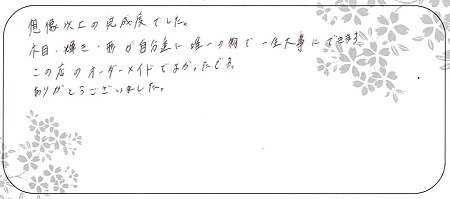 想像以上の完成度でした。
木目・輝き・形が自分達に唯一の物で一生大事にできます
この店のオーダーメイドでよかったです。
ありがとうございました。